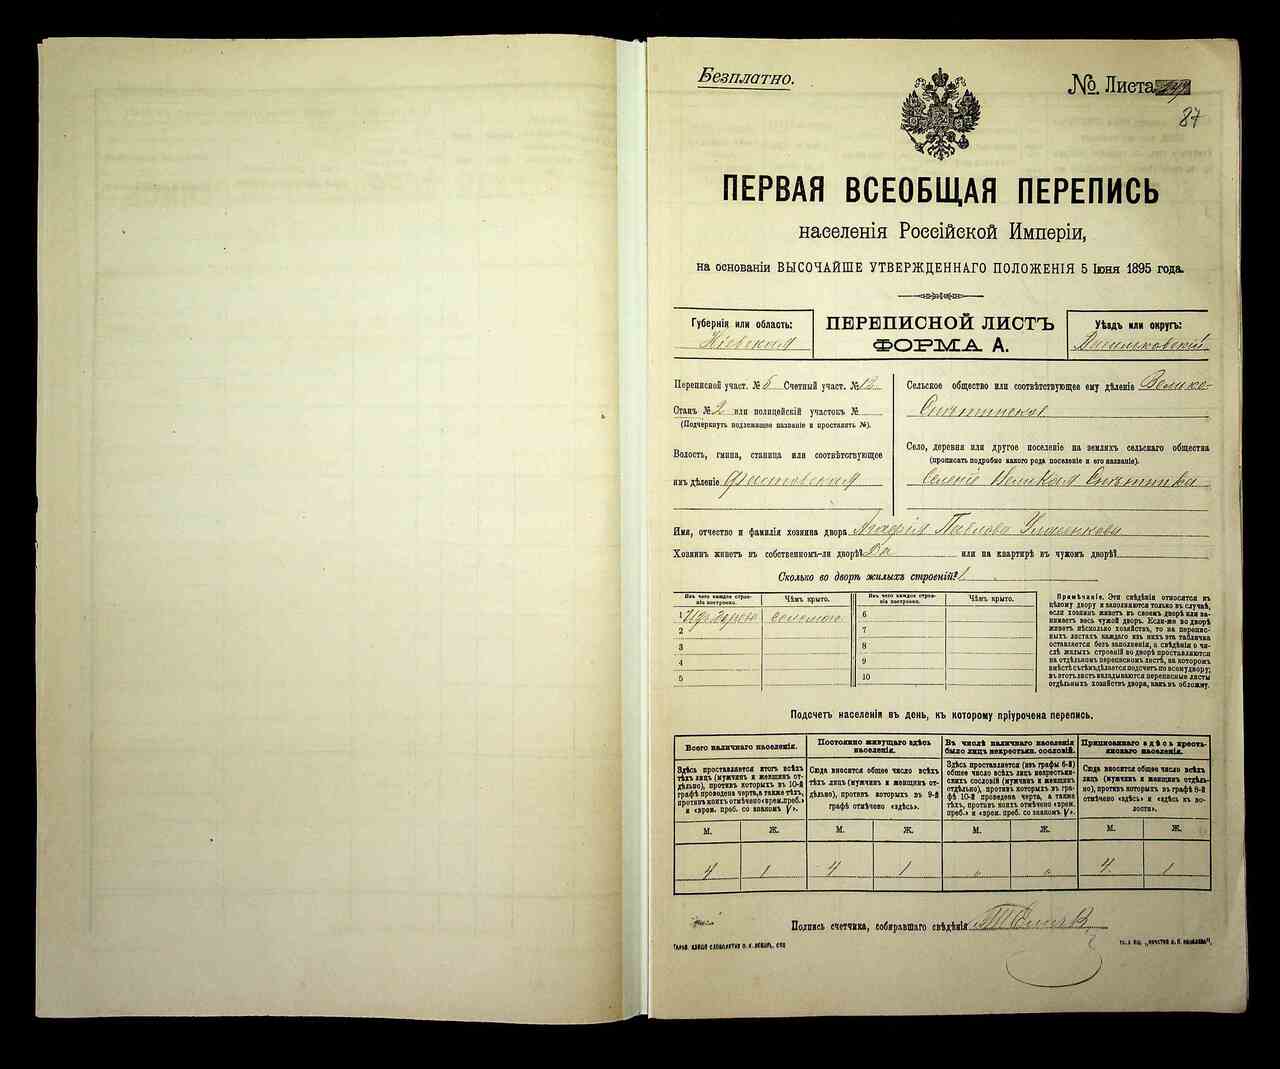 Безплатно.
№. Листа
87
ПЕРВАЯ ВСЕОБЩАЯ ПЕРЕПИСЬ
населенія Россійской Имперіи,
на основаніи ВЫСОЧАЙШЕ УТВЕРЖДЕННАГО ПОЛОЖЕНІЯ 5 Іюня 1895 года.
Губернія или область:
Кіевская
ПЕРЕПИСНОЙ ЛИСТЪ
ФОРМА А.
Уѣздъ или округъ:
Васильковскій
Переписной участ. № 6 Счетный участ. № 13
Станъ № 2 или полицейскій участокъ №
(Подчеркнуть подлежащее названіе и проставить №).
Волость, гмина, станица или соотвѣтствующее
имъ дѣленіе Фастовская
Сельское общество или соотвѣтствующее ему дѣленіе Велико-
Снѣтинское
Село, деревня или другое поселеніе на земляхъ сельскаго общества
(прописать подробно какого рода поселеніе и его названіе).
Селеніе Великая Снѣтинка
Имя, отчество и фамилія хозяина двора Агафія Павлова
Хозяинъ живетъ въ собственномъ-ли дворѣ? Да или на квартирѣ въ чужомъ дворѣ?
Сколько во дворѣ жилыхъ строеній? 1
Изъ чего каждое строе-
ніе построено.
Чѣмъ крыто.
Изъ чего каждое строе-
ніе построено.
Чѣмъ крыто.
1 соломою
2
3
4
5
6
7
8
9
10
Примѣчаніе. Эти свѣдѣнія относятся къ
цѣлому двору и заполняются только въ случаѣ,
если хозяинъ живетъ въ своемъ дворѣ или за-
нимаетъ весь чужой дворъ. Если-же во дворѣ
живетъ нѣсколько хозяйствъ, то на перепис-
ныхъ листахъ каждаго изъ нихъ эта табличка
оставляется безъ заполненія, а свѣдѣнія о чи-
слѣ жилыхъ строеній во дворѣ проставляются
на отдѣльномъ переписномъ листѣ, на которомъ
вмѣстѣ съ тѣмъ дѣлается подсчетъ по всему двору;
въ этотъ листъ вкладываются переписные листы
отдѣльныхъ хозяйствъ двора, какъ въ обложку.
Подсчетъ населенія въ день, къ которому пріурочена перепись.
Всего наличнаго населенія.
Здѣсь проставляется итогъ всѣхъ
тѣхъ лицъ (мужчинъ и женщинъ от-
дѣльно), противъ которыхъ въ 10-й
графѣ проведена черта, а также тѣхъ,
противъ коихъ отмѣчено «врем. преб.»
и «врем. преб. со знакомъ V».
Постоянно живущаго здѣсь
населенія.
Сюда вносится общее число всѣхъ
тѣхъ лицъ (мужчинъ и женщинъ от-
дѣльно), противъ которыхъ въ 9-й
графѣ отмѣчено «здѣсь».
Въ числѣ наличнаго населенія
было лицъ некрестьян. сословій.
Здѣсь проставляется (изъ графы 6-й)
общее число всѣхъ лицъ некрестьян-
скихъ сословій (мужчинъ и женщинъ
отдѣльно), противъ которыхъ въ гра-
фѣ 10-й проведена черта, а также
тѣхъ, противъ коихъ отмѣчено «врем.
преб.» и «врем. преб. со знакомъ V».
Приписаннаго здѣсь кресть-
янскаго населенія.
Сюда вносится общее число всѣхъ
лицъ (мужчинъ и женщинъ отдѣль-
но), противъ которыхъ въ графѣ 8-й
отмѣчено «здѣсь» и «здѣсь къ во-
лости».
М. Ж. М. Ж. М. Ж. М. Ж.
4 1 4 1 " " 4 1
Подпись счетчика, собиравшаго свѣдѣнія